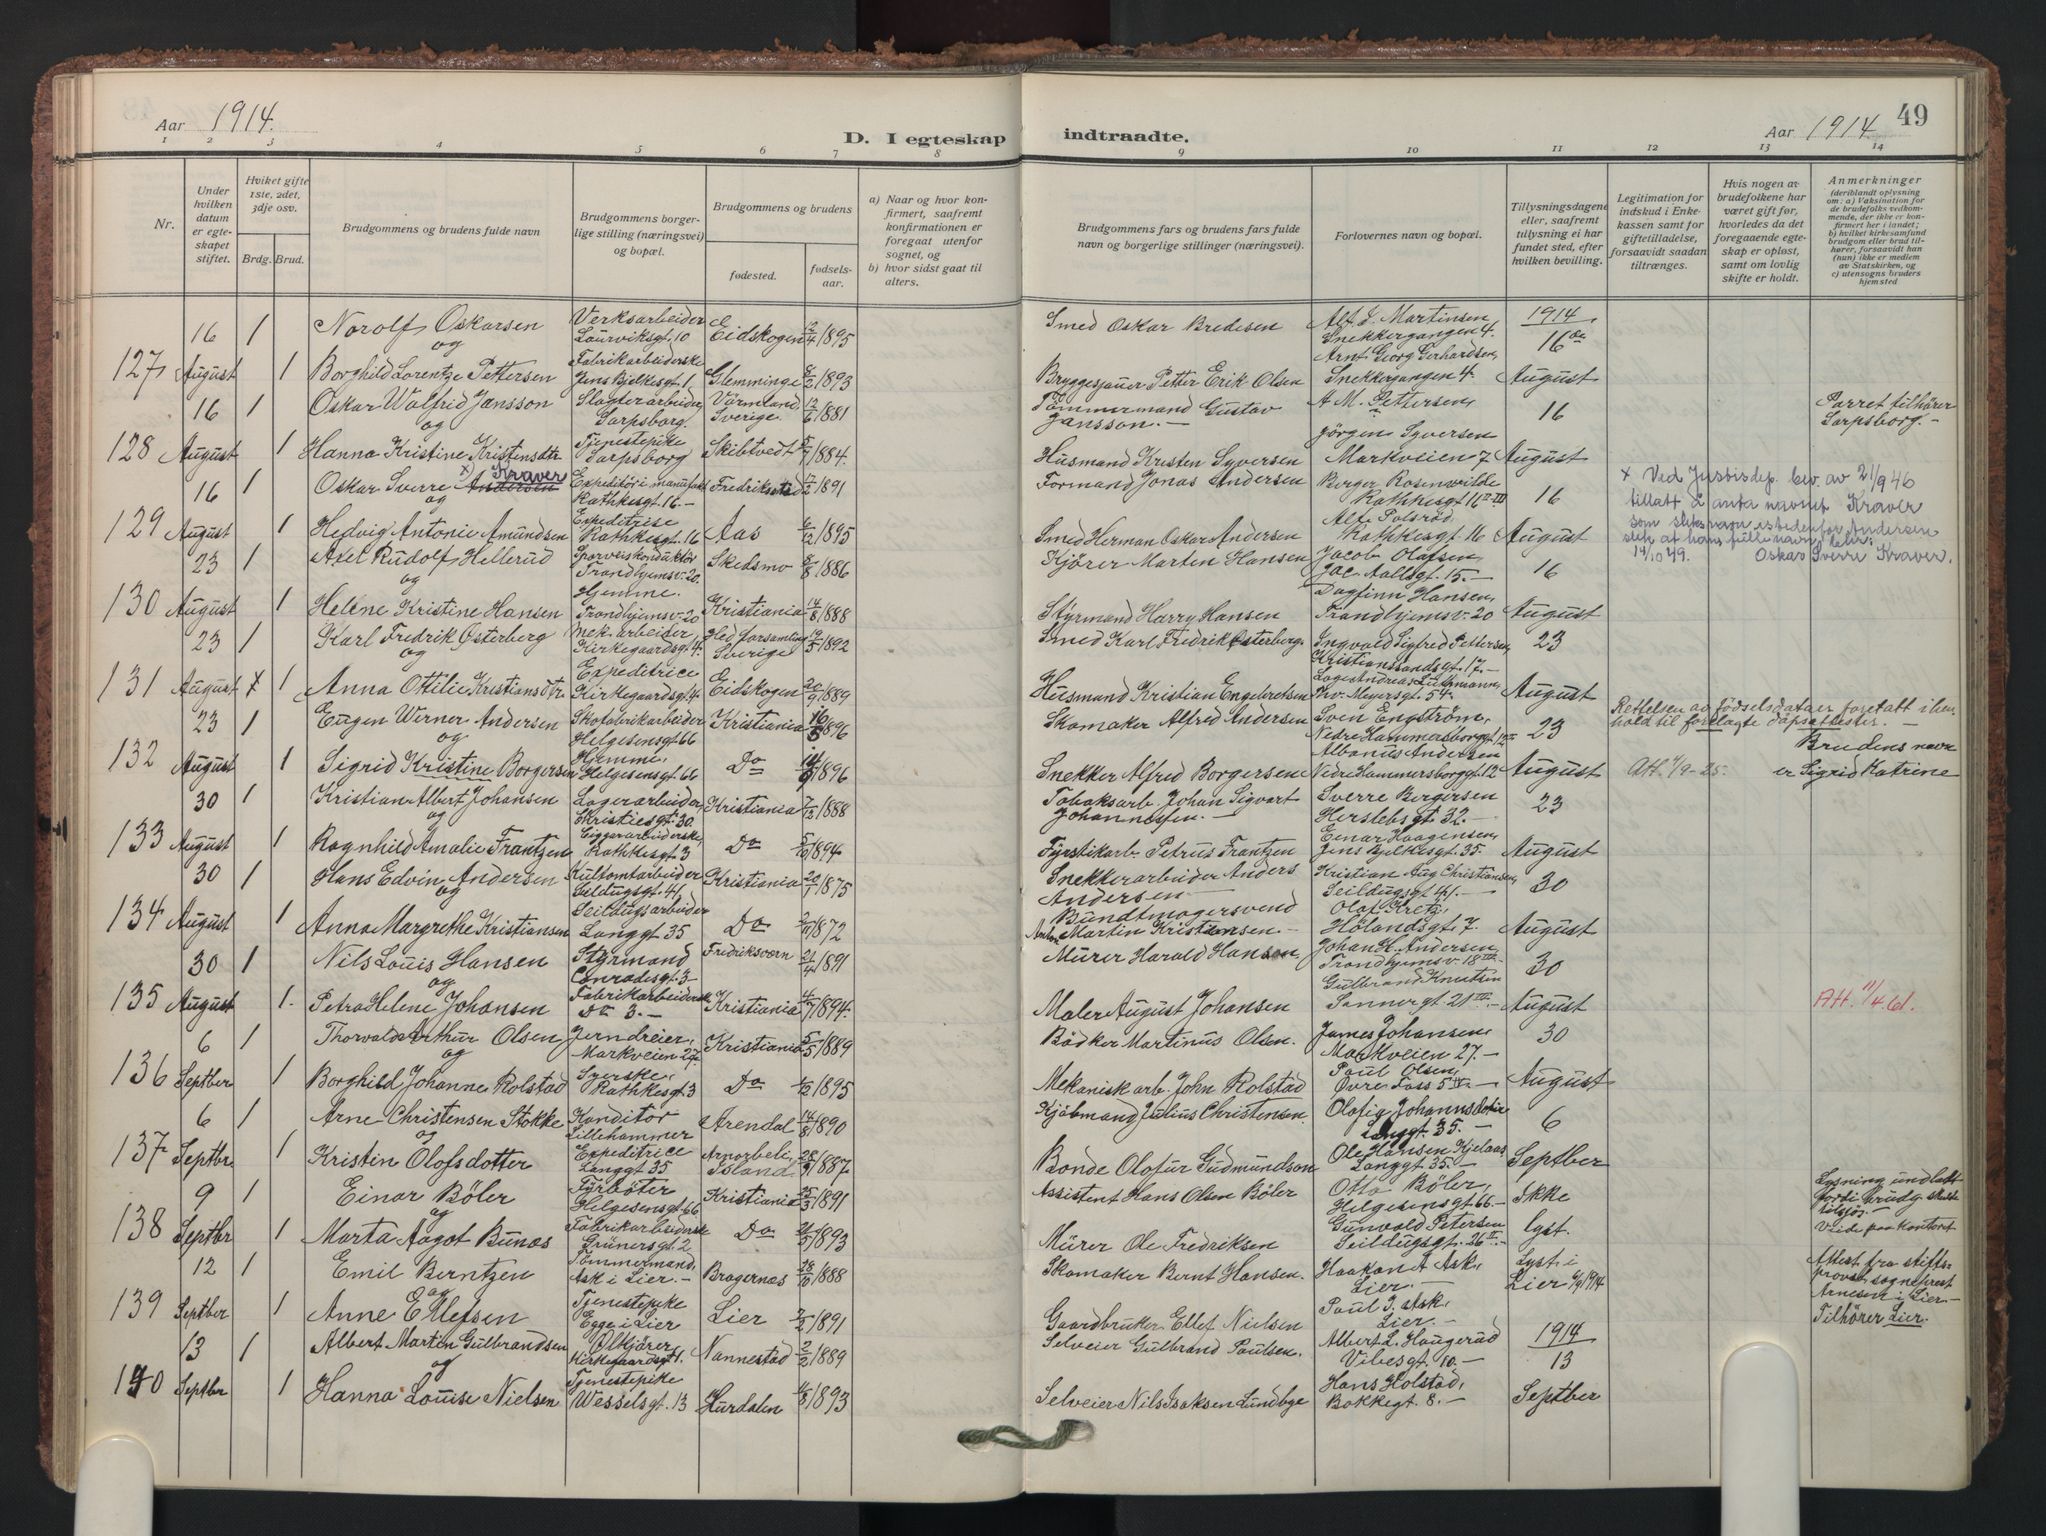 Aar 1914.
D. I egteskap indtraadte.
Aar 1914
49
1 2 3 4 5 6 7 8 9 10 11 12 13 14
Nr.
Under hvilken datum er egteskapet stiftet.
Hviket gifte 1ste, 2det, 3dje osv.
Brdg. Brud.
Brudgommens og brudens fulde navn
Brudgommens borgerlige stilling (næringsvei) og bopæl.
Brudgommens og brudens
fødested.
fødselsaar.
a) Naar og hvor konfirmert, saafremt konfirmationen er foregaat utenfor sognet, og
b) hvor sidst gaat til alters.
Brudgommens fars og brudens fars fulde navn og borgerlige stillinger (næringsvei).
Forlovernes navn og bopæl.
Tillysningsdagene eller, saafremt tillysning ei har fundet sted, efter hvilken bevilling.
Legitimation for indskud i Enkekassen samt for giftetilladelse, forsaavidt saadan tiltrænges.
Hvis nogen av brudefolkene har været gift før, hvorledes da det foregaaende egteskap er opløst, samt om lovlig skifte er holdt.
Anmerkninger
(deriblandt oplysning om: a) Vaksination for de brudefolks vedkommende, der ikke er konfirmert her i landet; b) hvilket kirkesamfund brudgom eller brud tilhører, forsaavidt han (hun) ikke er medlem av Statskirken, og c) utensogns bruders hjemsted
127 16 August 1 1
Norolf Oskarsen
og
Borghild Lorentze Pettersen
Verksarbeider
Laurviksgt. 10
Fabrikarbeiderske
Jens Bjelkesgt. 1
Eidskogen 12/4 1895
Glemminge 8/2 1893
Smed Oskar Bredesen
Bryggesjauer Petter Erik Olsen
Alf. L. Martinsen
Snekkergangen 4.
Arnt Georg Gerhardsen,
Snekkergangen 4.
1914
16de
August
128 16 August 1 1
Oskar Walfrid Jansson
og
Hanna Kristine Kristensdtr
Slagterarbeider
Sarpsborg.
Tjenestepike
Sarpsborg
Värmland
Sverige 12/6 1881
Skibtvedt 5/7 1884.
Tömmermand Gustav
Jansson.
Husmand Kristen Syversen
A M. Pettersen,
Jörgen Syversen
Markveien 7
16
August
Parret tilhører
Sarpsborg.
129 16 August 1 1
Oskar Sverre Andersen x) Kraver
og
Hedvig Antonie Amundsen
Expeditör i manufakt
Rathkesgt. 16
Expeditrise
Rathkesgt. 16
Fredrikstad 17/2 1891
Aas 6/12 1895
Formand Jonas Andersen
Smed Herman Oskar Andersen
Berger Rosenwilde
Rathkesgt 16 II-III
Alf Polsröd
Rathkesgt 16
16
August
x Ved Justisdep. bev. av 21/9 46
tillatt å anta navnet Kraver
som slektsnavn istedenfor Andersen
slik at hans fulle navn blir:
14/10 49. Oskar Sverre Kraver.
130 23 August 1 1
Axel Rudolf Hellerud
og
Helene Kristine Hansen
Sporveiskonduktör
Trondhjemsv. 20
Hjemme.
Trondhjemsv. 20
Skedsmo 8/8 1886
Kristiania 14/8 1888
Kjörer Marten Hansen
Styrmand Harry Hansen
Jacob Olafsen
Jac. Aallsgt. 15.
Dagfinn Hansen,
Trondhjemsv. 20
16
August
131 23 August 1 x 1
Karl Fredrik Österberg
og
Anna Ottilie Kristiansdtr.
Mek. arbeider
Kirkegaardsgt. 4
Expeditrice
Kirkegaardsgt. 4
Hed forsamling
Sverige 19/5 1892
Eidskogen 20/9 1889
Smed Karl Fredrik Østerberg.
Husmand Kristian Engebretsen
Ingvald Sigfred Pettersen,
Kristianssandsgt. 17.
Lage Andreas Luthmann,
Thv. Meyersgt. 54.
23
August
132 23 August 1 1
Eugen Werner Andersen
og
Sigrid Kristine Borgersen
Skofabrikarbeider
Helgesensgt 66
Hjemme,
Helgesensgt. 66
Kristiania 16/5 1896
Do 1896
Skomaker Alfred Andersen
Snekker Alfred Borgersen
Sven Engström,
Nedre Hammersborggt. 12
Albanus Andersen
Nedre Hammersborggt. 12
23
August
Rettelsen av fødselsdataer foretatt i hen
hold til forelagte dåpsattester.
Att. 1/9-25.
Brudens navn
er Sigrid Katrine
133 30 August 1 1
Kristian Albert Johansen
og
Ragnhild Amalie Frantzen
Lagerarbeider,
Christiesgt. 30.
Ciggararbeiderske,
Rathkesgt. 3
Kristiania 7/12 1888
Do 5/10 1894
Tobaksarb. Johan Sigvart
Johannesen.
Fyrstikarb. Petrus Frantzen
Sverre Bergersen
Herslebsgt. 32.
Einar Haagensen,
Jens Bjelkesgt. 35.
23
August
134 30 August 1 1
Hans Edvin Andersen
og
Anna Margrethe Kristiansen
Kultomtarbeider
Seildugsgt. 41,
Seildugsarbeider
Langgt. 35
Kristiania 20/1 1875
Do 2/11 1872
Snekkerarbeider Anders
Andersen
Bundtmagersvend
Anton Martin Kristiansen.
Kristian Aug Christiansen,
Seildugsgt 41.
Olaf Kretz,
Hölandsgt. 7.
30
August
135 30 August 1 1.
Nils Louis Hansen
og
Petra Helene Johansen
Styrmand
Conradesgt. 3
Fabrikarbeiderske
Do 3.
Fredriksværn 21/4 1891
Kristiania 4/7 1894.
Mürer Harald Hansen
Maler August Johansen
Johan H. Andersen,
Trondhjemsv 18 III
Gulbrand Knutsen
Sannergt. 21 III.
30
August
Att. 11/4 61.
136 6 Septber 1 1
Thorvald Arthur Olsen
og
Borghild Johanne Rolstad
Jerndreier,
Markveien 27.
Syerske,
Rathkesgt. 3
Kristiania 5/5 1889
Do 1/12 1895
Bödker Martinus Olsen.
Mekanisk arb. John Rolstad
James Johansen,
Markveien 27.
Paul Olsen,
Övre Foss 5
30
August
137 6 Septbr 1 1
Arne Christensen Stokke
og
Kristin Olofsdotter
Konditor
Lillehammer
Expeditrice
Langgt 35
Arendal 14/8 1890
Arnarbeli,
Island 28/9 1887
Kjöbmand Julius Christensen
Bonde Olofur Gudmundson
Olafia Johannsdotir
Langgt. 35.
Ole Hansen Kjelaas,
Langgt 35.
6
Septber
138 9 Septbr 1 1
Einar Böler
og
Marta Aagot Bunæs
Fyrböter
Helgesensgt. 66
Fabrikarbeiderske
Grünersgt. 2
Kristiania 25/3 1891
Do 1893
Assistent Hans Olsen Böler
Mürer Ole Fredriksen
Otto Böler,
Helgesensgt 66.
Gunvald Petersen
Seildugsgt. 26 II.
Ikke
lyst.
Lysning undlatt
fordi brudg. skulde
tilsjøs.
Veide paa kontoret
139 12 Septber 1 1
Emil Berntzen
og
Anne Ellefsen
Tömmermand,
Ask i Lier.
Tjenestepike
Egge i Lier
Bragernæs 1888
Lier 7/2 1891
Skomaker Bernt Hansen.
Gaardbruker Ellef Nielsen
Haakon A Ask,
Lier.
Paul J. Ask,
Lier.
Lyst i
Lier 6/9 1914
Attest fra stifts-
provst sogneprest
Arnesen i Lier
Tilhører Lier.
140 13 Septbr 1 1
Albert Martin Gulbrandsen
og
Hanna Louise Nielsen
Ölkjörer
Kirkegaardsgt 1.
Tjenestepike
Wesselsgt. 13
Nannestad 2/2 1889
Hurdalen 1893
Selveier Gulbrand Paulsen.
Selveier Nils Isaksen Lundbye
Albert L. Haugerud
Vibesgt. 10.
Hans Holstad,
Bakkegt. 8.
1914
13
Septber